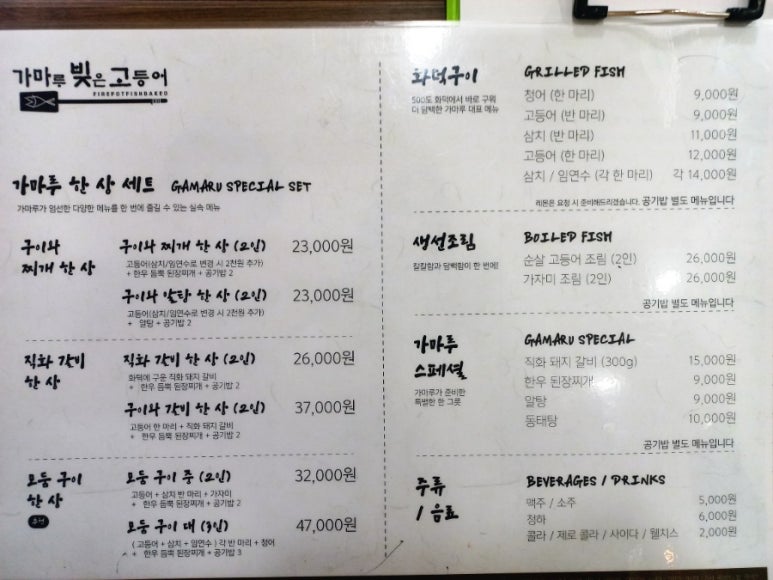 가마루 빚은 고등어
FIREPOTFISHBAKED
가마루 한 상 세트 GAMARU SPECIAL SET
가마루가 엄선한 다양한 메뉴를 한 번에 즐길 수 있는 실속 메뉴
구이와
찌개 한 상
구이와 찌개 한 상 (2인) 23,000원
고등어(삼치/임연수로 변경 시 2천원 추가)
+ 한우 듬뿍 된장찌개 + 공기밥 2
구이와 알탕 한 상 (2인) 23,000원
고등어(삼치/임연수로 변경 시 2천원 추가)
+ 알탕 + 공기밥 2
직화 갈비
한 상
직화 갈비 한 상 (2인) 26,000원
화덕에 구운 직화 돼지 갈비
+ 한우 듬뿍 된장찌개 + 공기밥 2
구이와 갈비 한 상 (2인) 37,000원
고등어 한 마리 + 직화 돼지 갈비
+ 한우 듬뿍 된장찌개 + 공기밥 2
모둠 구이
한 상
추천
모둠 구이 중 (2인) 32,000원
고등어 + 삼치 반 마리 + 가자미
+ 한우 듬뿍 된장찌개 + 공기밥 2
모둠 구이 대 (3인) 47,000원
( 고등어 + 삼치 + 임연수 ) 각 반 마리 + 청어
+ 한우 듬뿍 된장찌개 + 공기밥 3
화덕구이 GRILLED FISH
500도 화덕에서 바로 구워
더 담백한 가마루 대표 메뉴
청어 (한 마리) 9,000원
고등어 (반 마리) 9,000원
삼치 (반 마리) 11,000원
고등어 (한 마리) 12,000원
삼치 / 임연수 (각 한 마리) 각 14,000원
레몬은 요청 시 준비해드리겠습니다. 공기밥 별도 메뉴입니다
생선조림 BOILED FISH
칼칼함과 담백함이 한 번에!
순살 고등어 조림 (2인) 26,000원
가자미 조림 (2인) 26,000원
공기밥 별도 메뉴입니다
가마루
스페셜
GAMARU SPECIAL
가마루가 준비한
특별한 한 그릇
직화 돼지 갈비 (300g) 15,000원
한우 된장찌개 9,000원
알탕 9,000원
동태탕 10,000원
공기밥 별도 메뉴입니다
주류
/ 음료
BEVERAGES / DRINKS
맥주 / 소주 5,000원
청하 6,000원
콜라 / 제로 콜라 / 사이다 / 웰치스 2,000원